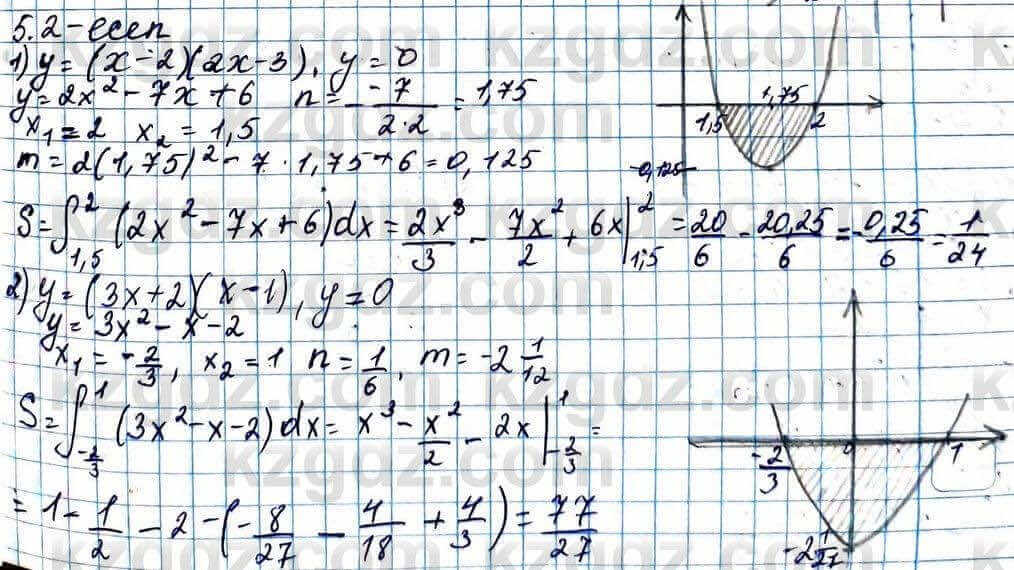 5.2-есеп
1) y = (x-2)(2x-3), y = 0
y = 2x² - 7x + 6 n = - -7/2·2 = 1,75
x₁ = 2 x₂ = 1,5
m = 2(1,75)² - 7 · 1,75 + 6 = 0,125
S = ∫₁,₅² (2x² - 7x + 6)dx = 2x³/3 - 7x²/2 + 6x |₁,₅² = 20/6 - 20,25/6 = -0,25/6 = 1/24
2) y = (3x+2)(x-1), y = 0
y = 3x² - x - 2
x₁ = -2/3, x₂ = 1 n = 1/6, m = -2 1/12
S = ∫₋₂/₃¹ (3x² - x - 2)dx = x³ - x²/2 - 2x |₋₂/₃¹ =
= 1 - 1/2 - 2 - (-8/27 - 4/18 + 4/3) = 77/27
1,75
1,5 2
-0,125
-2/3 0 1
-2 1/27
kzgdz.com